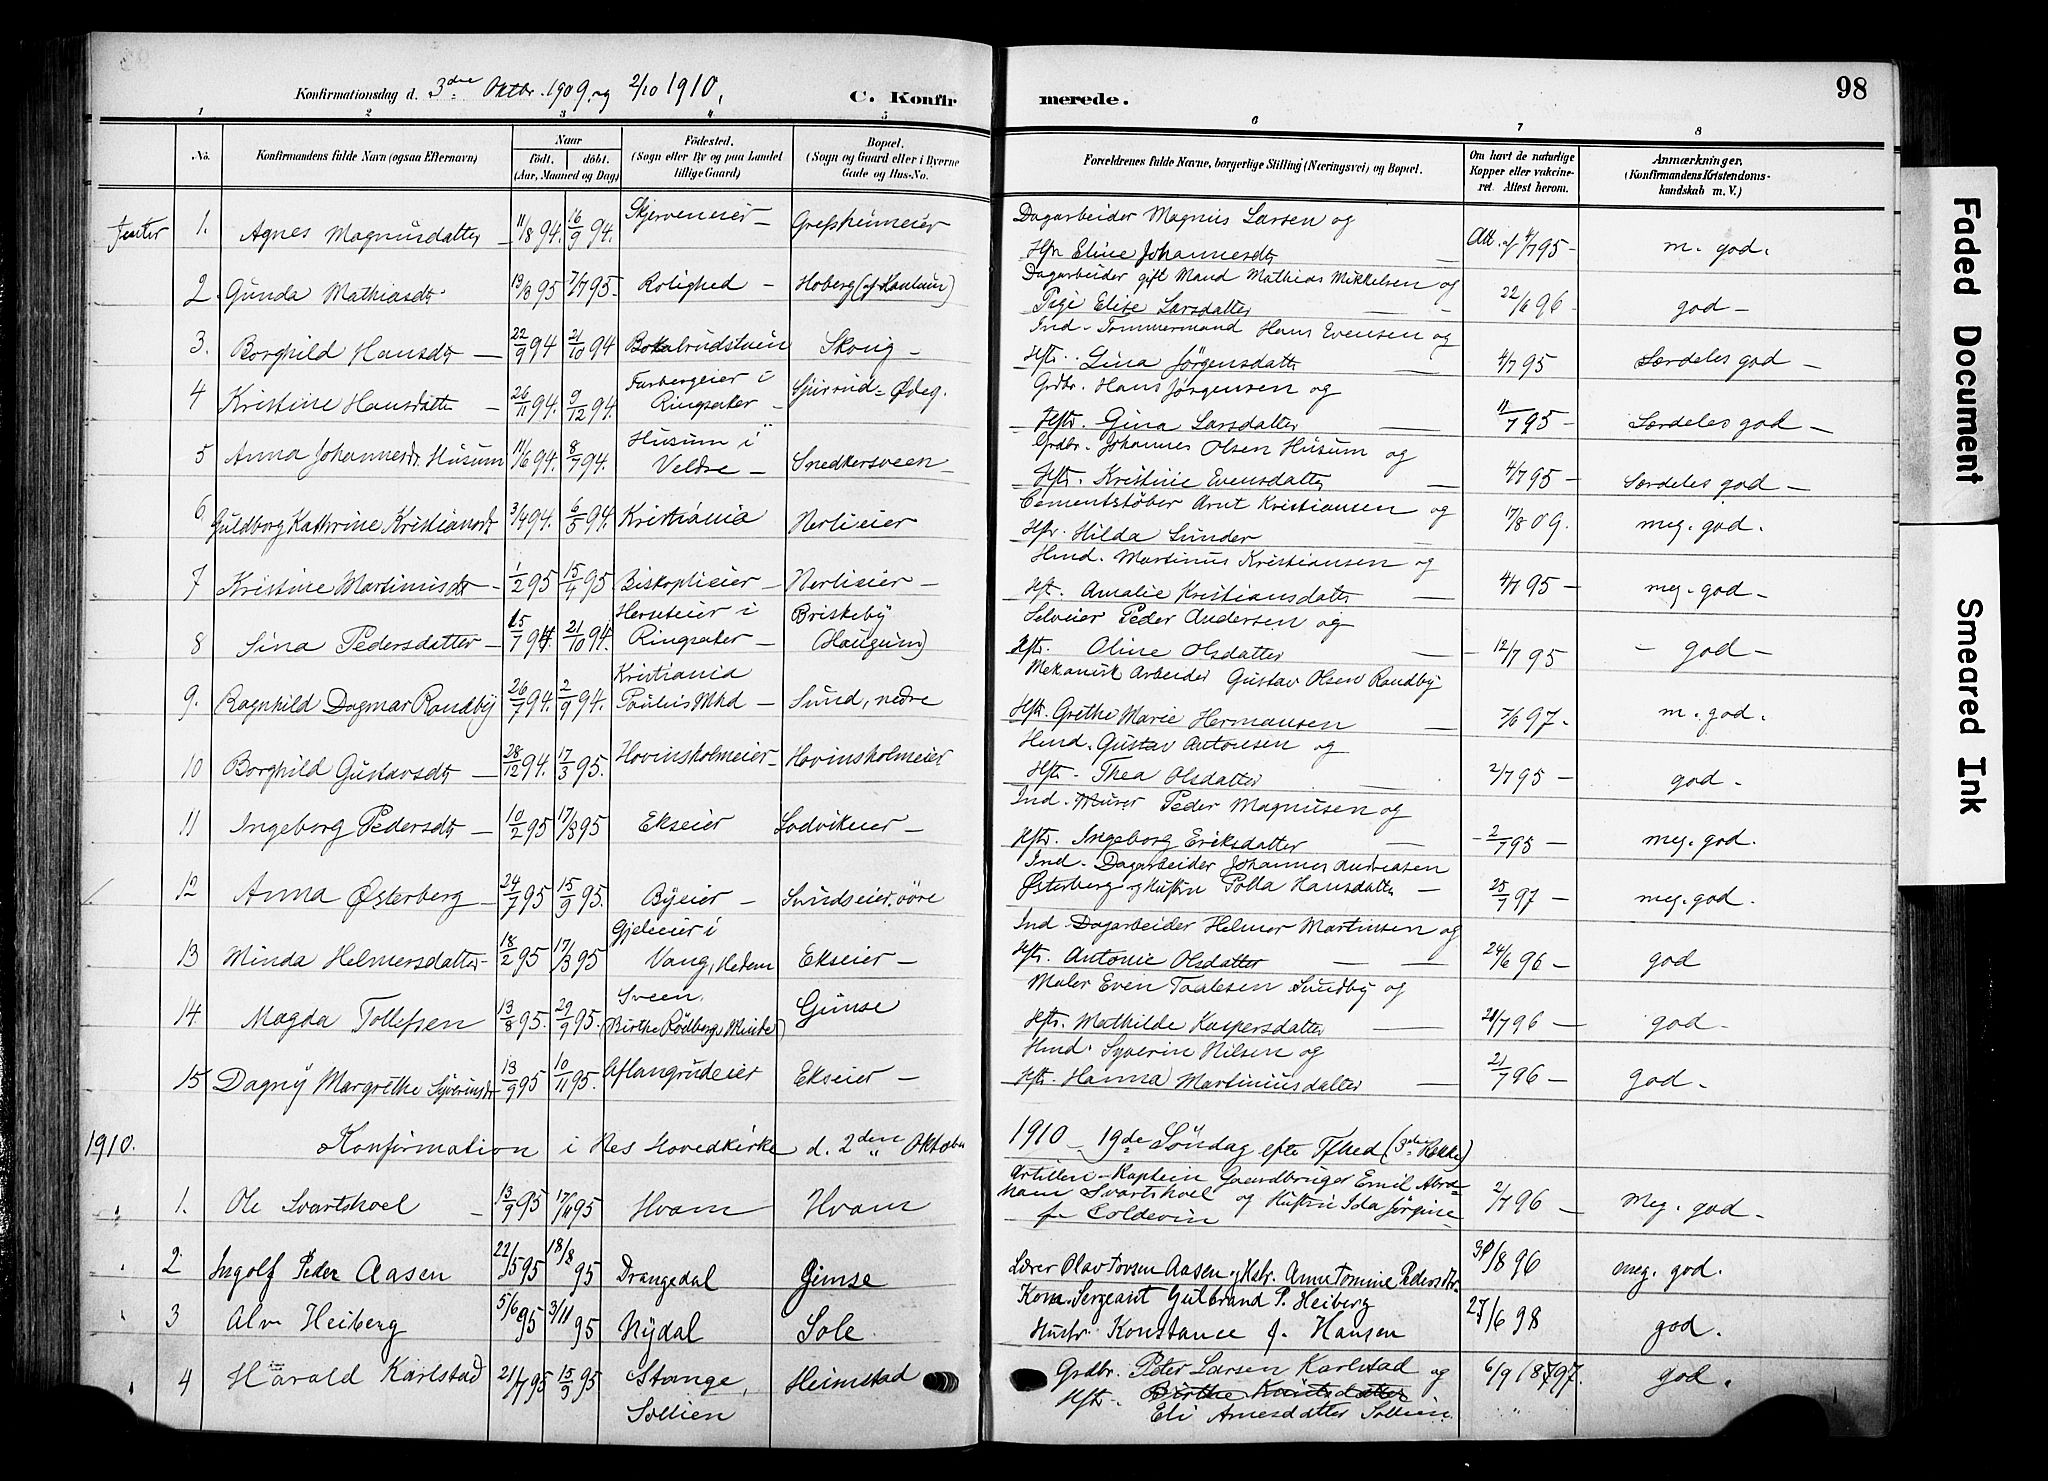 98
Konfirmationsdag d. 3die Oktbr. 1909 og 2/10 1910.
C. Konfirmerede.
1 2 3 4 5 6 7 8
No. Konfirmandens fulde Navn (ogsaa Efternavn) Naar født. døbt. (Aar, Maaned og Dag) Fødested. (Sogn eller By og paa Landet tillige Gaard) Bopæl. (Sogn og Gaard eller i Byerne Gade og Hus-No. Forældrenes fulde Navne, borgerlige Stilling (Næringsvei) og Bopæl. Om havt de naturlige Kopper eller vakcineret. Attest herom. Anmærkninger. (Konfirmandens Kristendomskundskab m. V.)
1. Agnes Magnusdatter 11/8 94. 16/9 94. Skjerveneier – Gresheimeier Dagarbeider Magnus Larsen og Hfr Eline Johannesdt Att. af 4/7 95 – m. god.
2. Gunda Mathiasdt 13/3 95 7/7 95. Rolighed – Hoberg Dagarbeider gift Mand Mathias Mikkelsen og Pige Elise Larsdatter 22/6 96 god –
3. Borghild Hansdt – 22/9 94 21/10 94 Skoug – Ind. Tømmermand Hans Evensen og Hstr. Lina Jørgensdatter 4/7 95 Særdeles god –
4 Kristine Hansdatter – 26/11 94. 9/12 94. Furbergeier i Ringsaker – Gjuvrud – Ødeg. Grdbr. Hans Jørgensen og Hstr. Gina Larsdatter 11/7 95 Særdeles god –
5 Anna Johannesdt. Husum 11/6 94. 8/7 94. Husum i Veldre – Snedkersveen – Grdbr. Johannes Olsen Husum og Hstr. Kristine Evensdatter 4/7 95 – Særdeles god –
6 Guldborg Kathrine Kristiansdt 3/4 94. 6/5 94. Kristiania Nerlieier Cementstøber Arnt Kristiansen og Hfr. Hilda Sunder 17/8 09. meg. god.
7 Kristine Martinusdt – 1/2 95 15/4 95 Biskoplieier – Nerlieier – Hmd. Martinus Kristiansen og Hst. Amalie Kristiansdatter 4/7 95 – meg. god –
8 Sina Pedersdatter – 15/7 94 21/10 94. Herseteier i Ringsaker – Briskeby (Haugum) Selveier Peder Andersen og Hstr. Oline Olsdatter – 12/7 95 – god –
9. Ragnhild Dagmar Randby 26/7 94. 2/9 94. Kristiania Paulus Mhd – Sund, nedre Mekanisk Arbeider Gustav Olsen Randby Hst. Grethe Marie Hermansen 7/6 97. m. god.
10 Borghild Gustavsdt – 28/12 94. 17/3 95. Hovinsholmeier – Hovinsholmeier Hmd. Gustav Antonsen og Hstr. Thea Olsdatter 2/7 95 – god –
11 Ingeborg Pedersdt – 10/2 95 17/3 95 Ekseier Lodvikeier – Ind. Murer Peder Magnusen og Hstr. Ingeborg Eriksdatter – 2/7 95 – meg. god.
12 Anna Østerberg – 24/7 95 15/9 95. Byeier – Sundseier, øvre Ind. Dagarbeider Johannes Andreasen Østerberg og Hustru Polla Hansdatter – 25/7 97 – meg. god.
13 Minda Helmersdatter – 18/2 95 17/3 95 Gjeleeier i Vang, Hedem Ekseier – Ind Dagarbeider Helmer Martinsen og Hstr. Antonie Olsdatter 24/6 96 – god
14 Magda Tollefsen 13/8 95. 29/9 95. Sveen. (Birthe Rødbergs Minde) Gimse Maler Even Taalesen Sundby og Hstr. Mathilde Kaspersdatter 20/7 96 – god –
15 Dagny Margrethe Syverinsdt 13/9 95 10/11 95. Aflangrudeier Ekseier – Hmd. Syverin Nilsen og Hstr. Hanna Martiniusdatter 21/7 96 – god –
1910. Konfirmation i Nes Hovedkirke d. 2den Oktober 1910 – 19de Søndag efter Tfhed (3die Række)
1. Ole Svartskoel – 13/9 95 17/11 95 Hvam Hvam Artilleri-Kaptein Gaardbruger Emil Abraham Svartskoel og Hustru Ida Jørgine f. Coldevin 2/7 96 – Meg. god –
2 Ingolf Peder Aasen 22/5 95 18/8 95 Drangedal Gimse Lærer Olav Tovsen Aasen og Hstr. Anne Tomine Pedersdtr. 31/8 96 meg. god.
3 Alv Heiberg 5/6 95 3/11 95 Nydal Sole Kom. Sergeant Gulbrand P. Heiberg Hustr. Konstance f. Hansen 27/6 98 god.
4 Harald Karlstad 21/7 95 15/9 95 Stange, Sollien Heimstad Grdbr. Peter Larsen Karlstad og Hstr. Birthe Knutsdatter Eli Arnesdatter Sollien 6/9 1897. god.
Faded Document
Smeared Ink